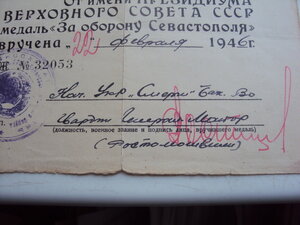 От имени ПРЕЗИДИУМА
ВЕРХОВНОГО СОВЕТА СССР
медаль «За оборону Севастополя»
вручена "22" февраля 1946 г.
№ 32053
Нач. Укр. Бак. Во
Гвардии Генерал-Майор
(должность, военное звание и подпись лица, вручившего медаль)